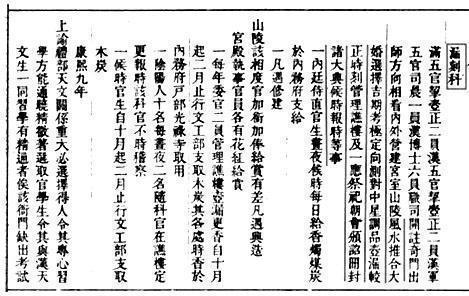 漏刻科
滿五官挈壺正二員漢五官挈壺正二員漢軍
五官司晨一員漢博士六員職司開註奇門出
師方向相看內外營建宮室山陵風水推合大
婚選擇吉期考極定向測對中星調品壺漏較
正時刻管理譙樓及一應祭祀朝會頒詔開封
諸大典候時報時等事
一內廷侍直官生晝夜候時每日給香燭煤炭
於內務府支給
一凡遇修建
山陵該相度官加銜加俸給賞有差凡遇興造
宮殿執事官員各有花紅給賞
一每年委官二員管理譙樓壺漏更香自十月
起二月止行文工部支取木炭其各處時香於
內務府戶部光祿寺取用
一陰陽人十名每晝夜二名隨科官在譙樓定
更報時該科官不時稽察
一候時官生自十月起二月止行文工部支取
木炭
康熙九年
上諭禮部天文關係重大必選擇得人令其專心習
學方能通曉精微著選取官學生令其與漢天
文生一同習學有精通者俟該衙門缺出考試